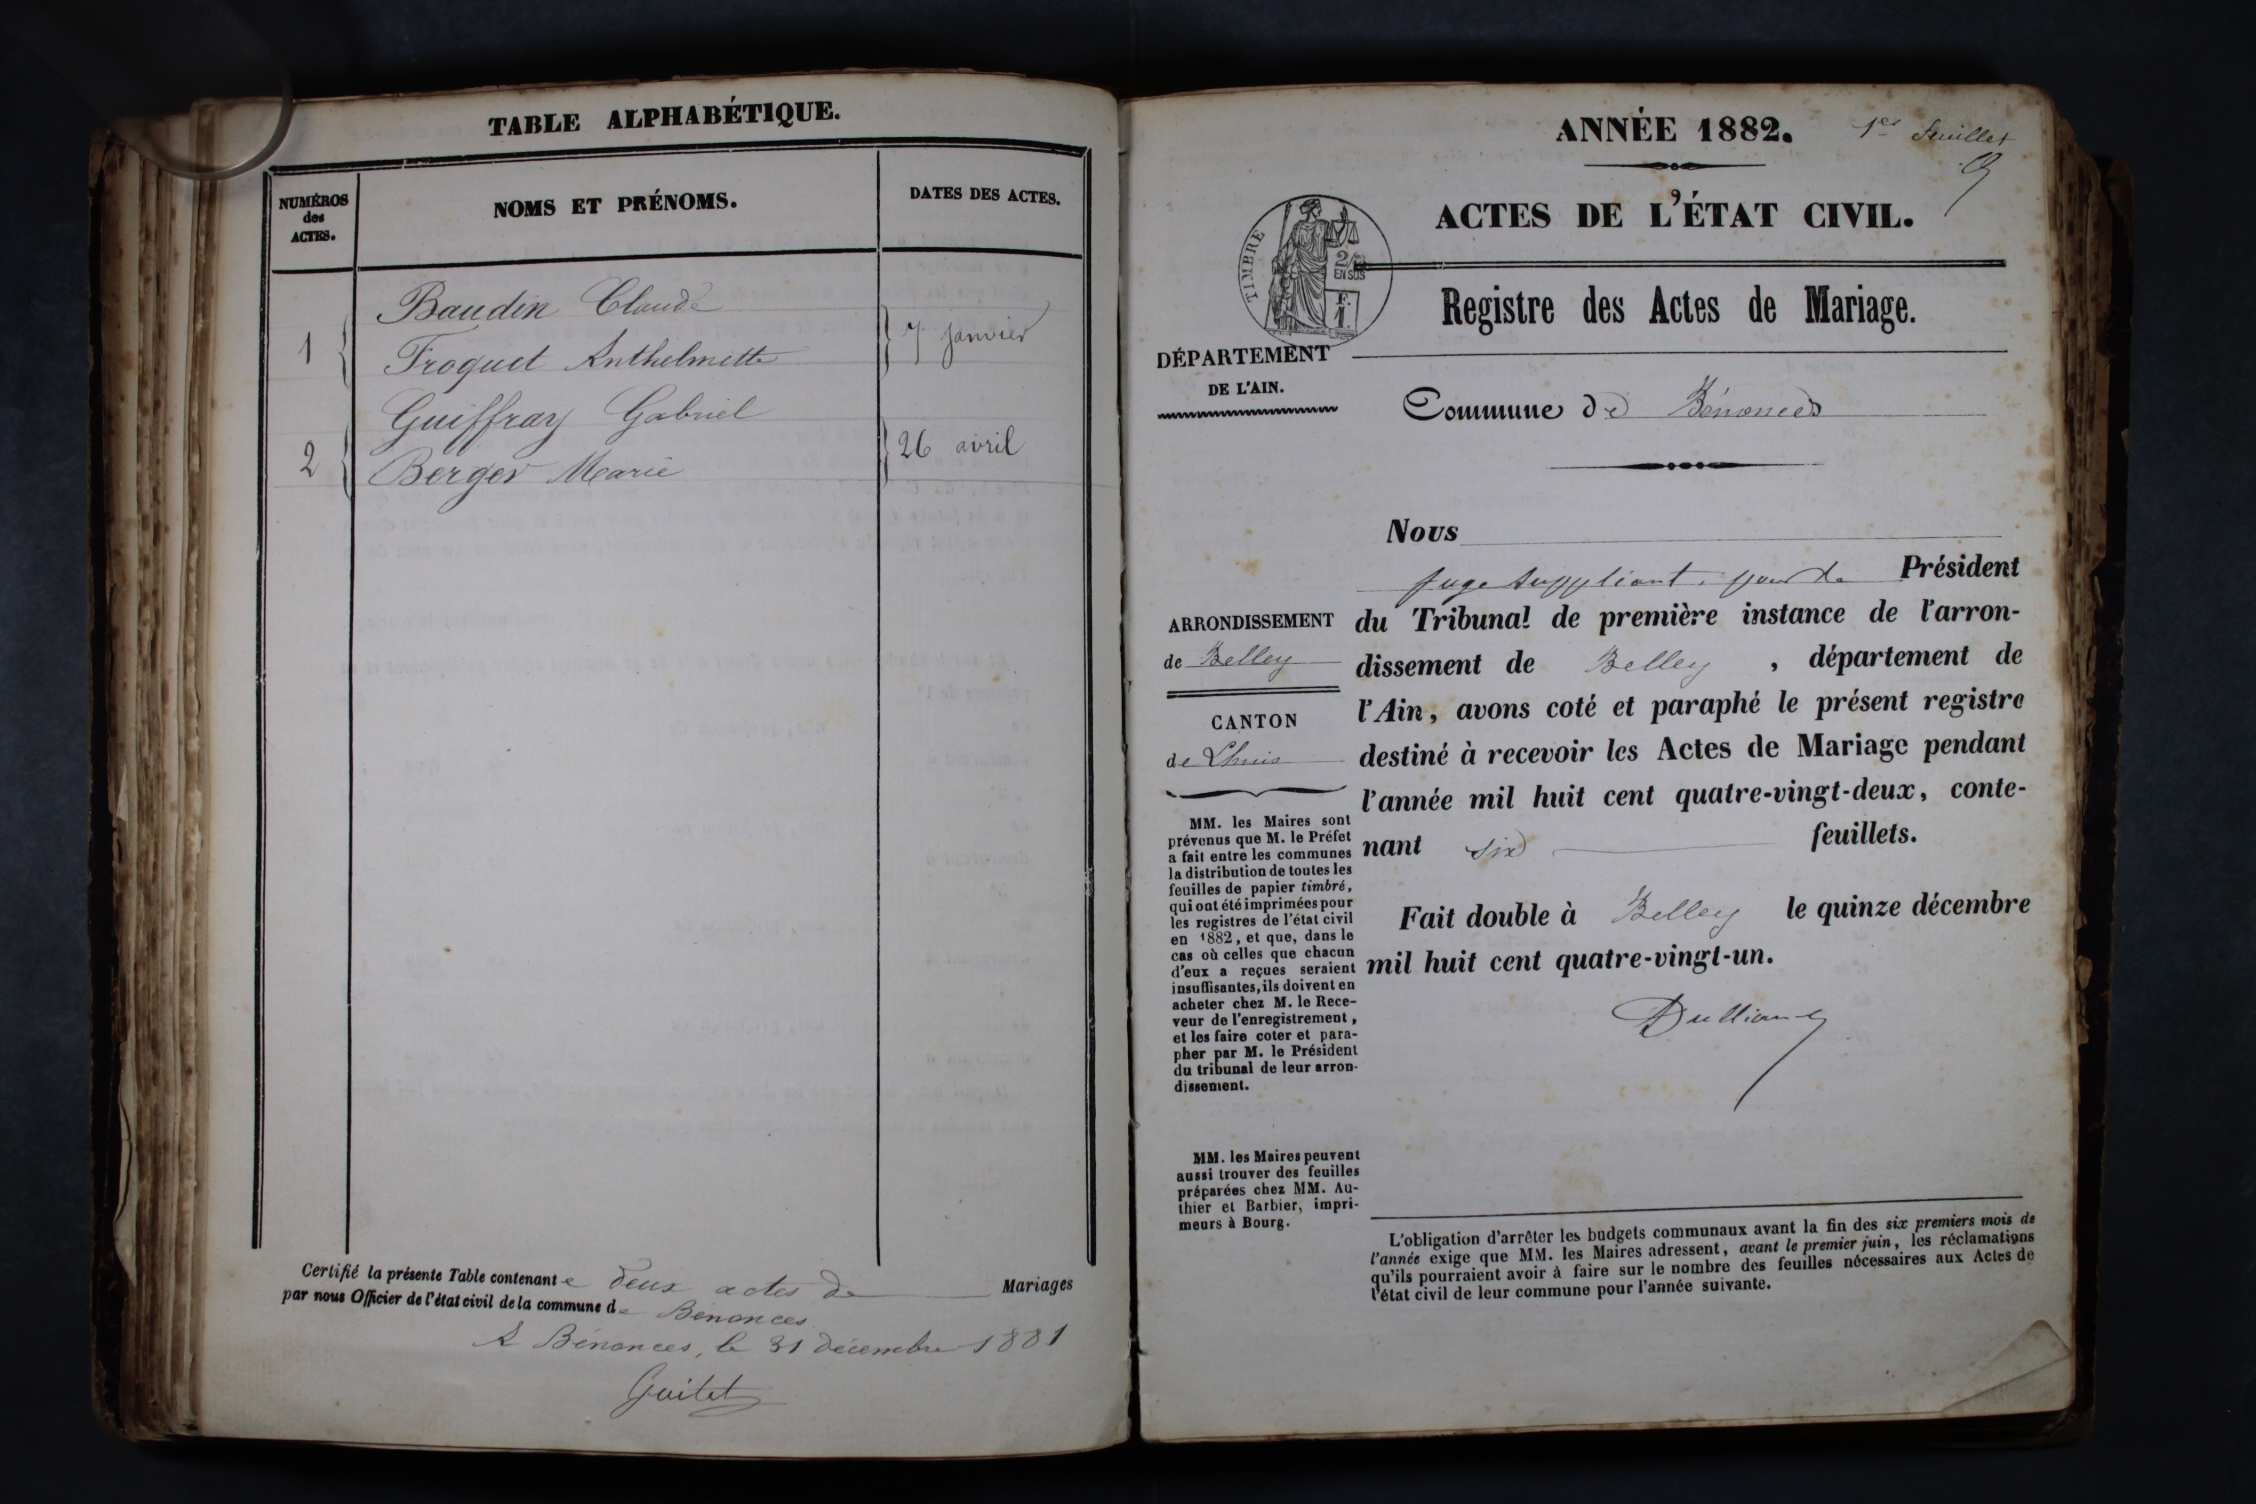 TABLE ALPHABÉTIQUE.
NUMÉROS
des
ACTES.
NOMS ET PRÉNOMS.
DATES DES ACTES.
1
Baudin Claude
Troquet Anthelmette
7 janvier
2
Guiffray Gabriel
Berger Marie
26 avril
Certifié la présente Table contenant deux actes de Mariages
par nous Officier de l'état civil de la commune de Bénonces
A Bénonces, le 31 décembre 1881
Guitet
ANNÉE 1882.
1er feuillet
ACTES DE L'ÉTAT CIVIL.
TIMBRE
2/
EN SUS
F.
1.
Registre des Actes de Mariage.
DÉPARTEMENT
DE L'AIN.
Commune de Bénonces
ARRONDISSEMENT
de Belley
CANTON
de Lhuis
MM. les Maires sont
prévenus que M. le Préfet
a fait entre les communes
la distribution de toutes les
feuilles de papier timbré,
qui ont été imprimées pour
les registres de l'état civil
en 1882, et que, dans le
cas où celles que chacun
d'eux a reçues seraient
insuffisantes, ils doivent en
acheter chez M. le Rece-
veur de l'enregistrement,
et les faire coter et para-
pher par M. le Président
du tribunal de leur arron-
dissement.
MM. les Maires peuvent
aussi trouver des feuilles
préparées chez MM. Au-
thier et Barbier, impri-
meurs à Bourg.
Nous
juge suppléant, pour le Président
du Tribunal de première instance de l'arron-
dissement de Belley, département de
l'Ain, avons coté et paraphé le présent registre
destiné à recevoir les Actes de Mariage pendant
l'année mil huit cent quatre-vingt-deux, conte-
nant six feuillets.
Fait double à Belley le quinze décembre
mil huit cent quatre-vingt-un.
L'obligation d'arrêter les budgets communaux avant la fin des six premiers mois de
l'année exige que MM. les Maires adressent, avant le premier juin, les réclamations
qu'ils pourraient avoir à faire sur le nombre des feuilles nécessaires aux Actes de
l'état civil de leur commune pour l'année suivante.